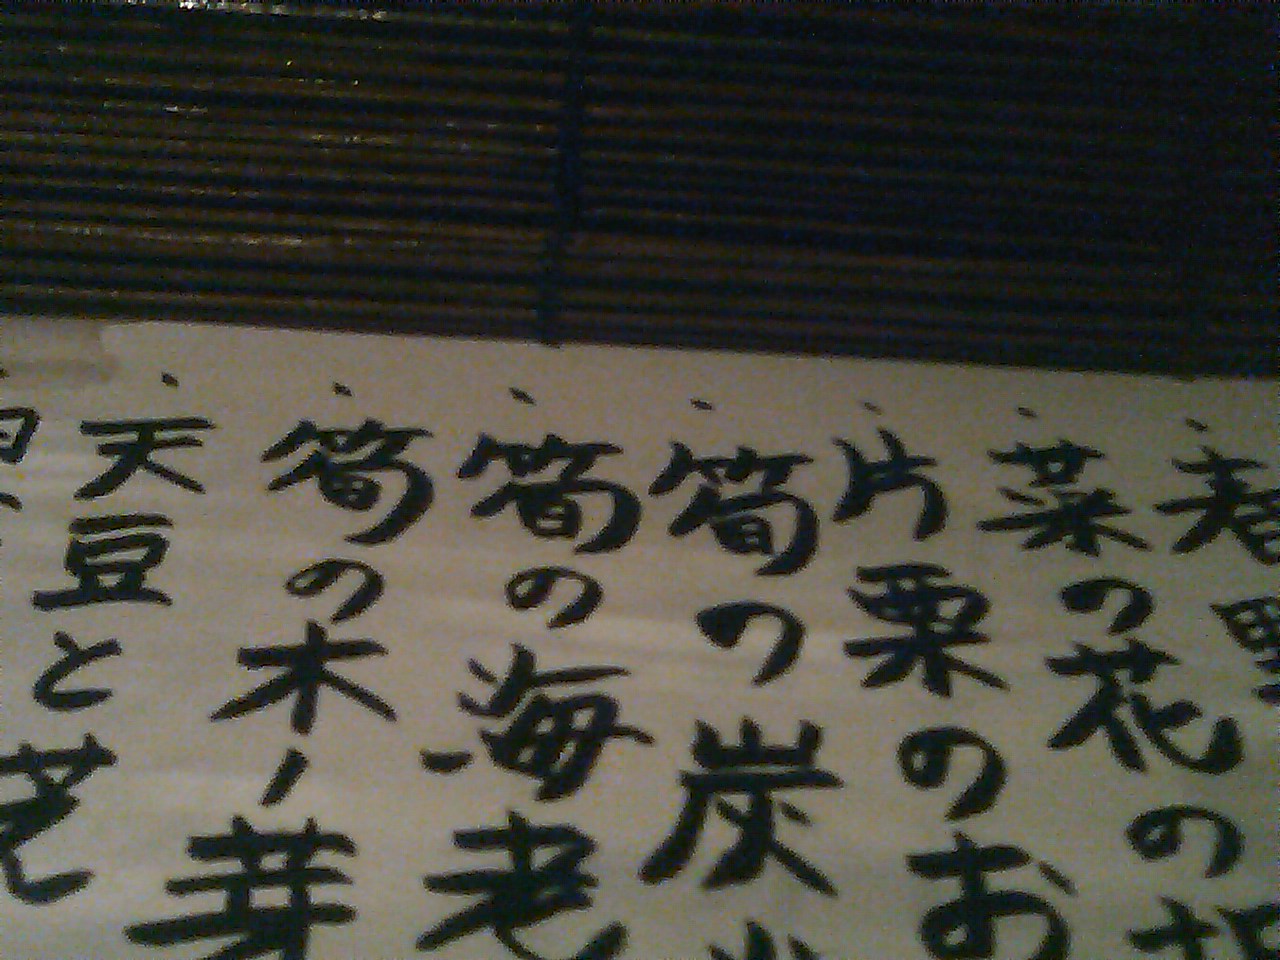 ・春野
・菜の花の
・片栗のお
・筍の炭
・筍の海老
・筍の木ノ芽
・天豆と芝